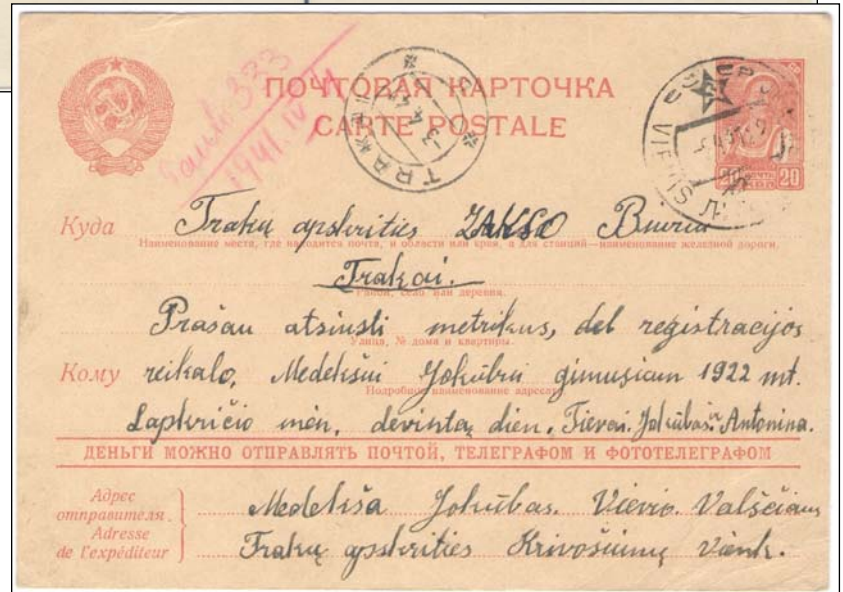 ПОЧТОВАЯ КАРТОЧКА
CARTE POSTALE
333
1941.IV
TRAKAI
3 4 41
VIEVIS
20 ПОЧТА 20
Куда Trakų apskrities ZAKSO Biuria
Наименование места, где находится почта, и области или края, а для станций—наименование железной дороги.
Trakai.
Район, село или деревня.
Prašau atsiusti metrikus, del registracijos
Улица, № дома и квартиры.
Кому reikalo, Medekšui Jokūbui gimusiam 1922 mt.
Подробное наименование адресата
Lapkričio mėn. devintą dien. Tievai. Jokūbas ir Antonina.
ДЕНЬГИ МОЖНО ОТПРАВЛЯТЬ ПОЧТОЙ, ТЕЛЕГРАФОМ И ФОТОТЕЛЕГРАФОМ
Адрес отправителя. Medekša Jokūbas. Vievio. Valsčiaus
Adresse de l'expéditeur Trakų apskrities Krivosiūnų Vienk.